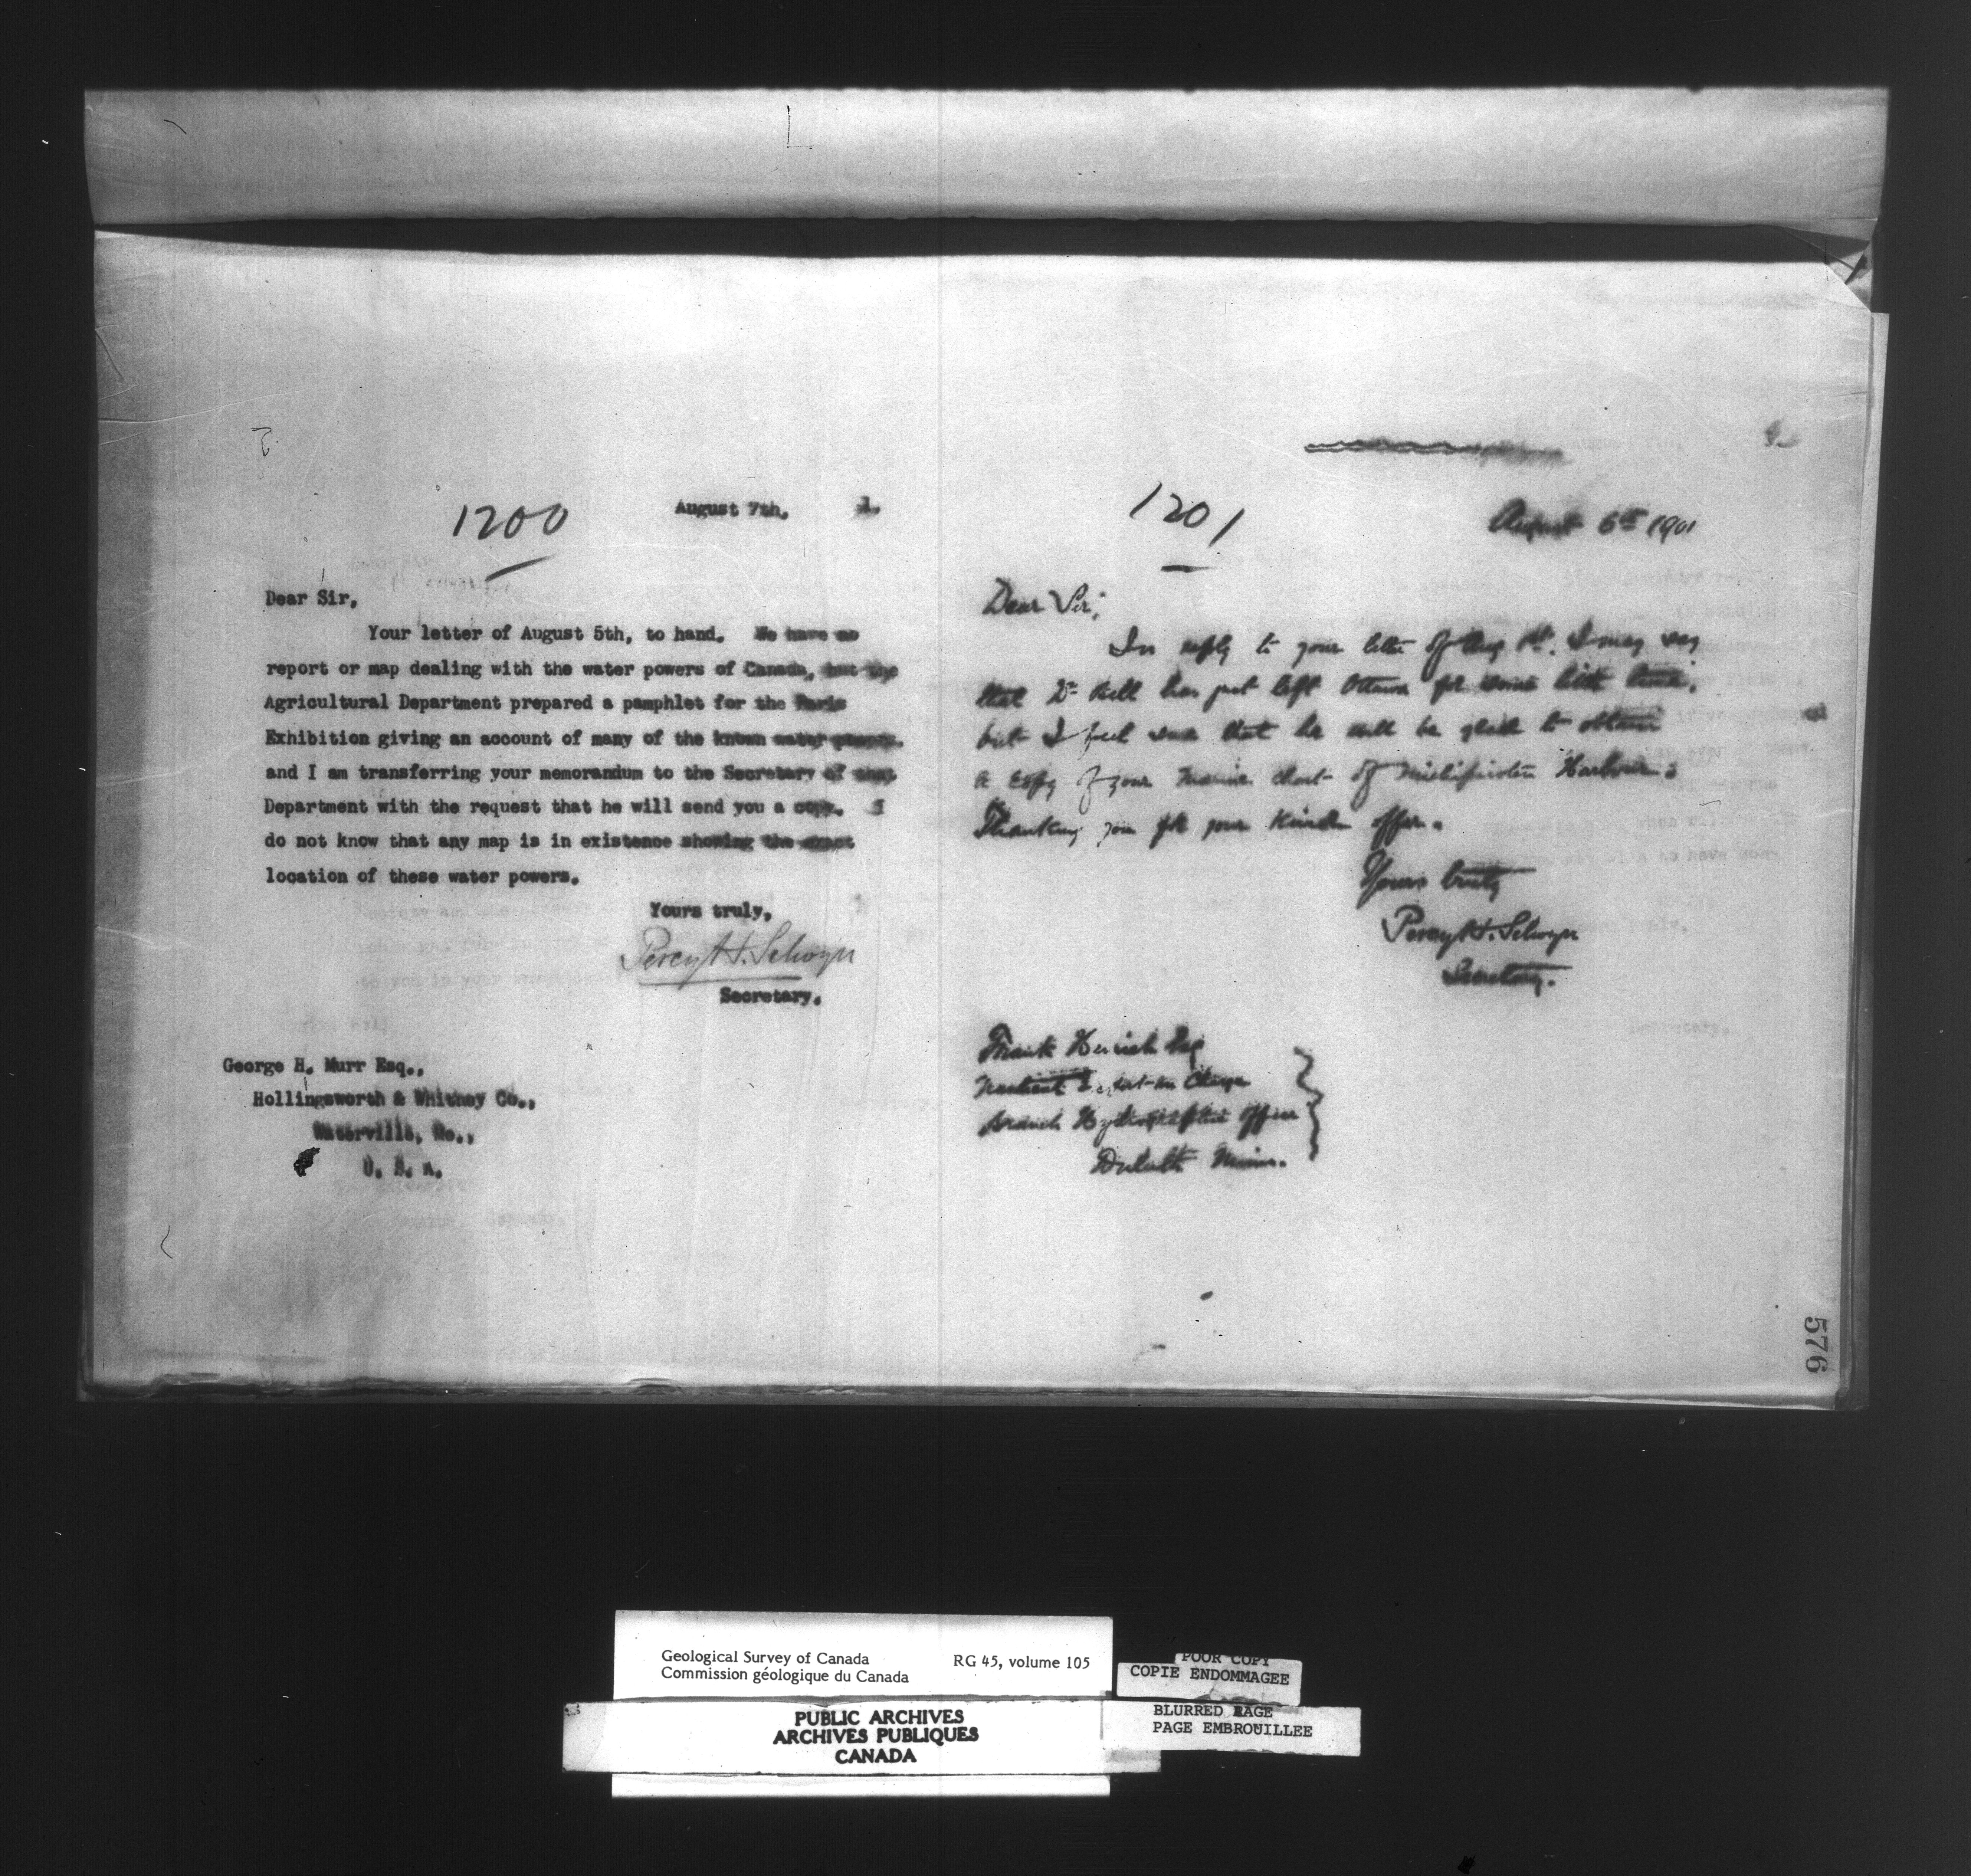 1200
August 7th, 1.
Dear Sir,
Your letter of August 5th, to hand. We have no
report or map dealing with the water powers of Canada, but the
Agricultural Department prepared a pamphlet for the Paris
Exhibition giving an account of many of the known water powers.
and I am transferring your memorandum to the Secretary of that
Department with the request that he will send you a copy. I
do not know that any map is in existence showing the exact
location of these water powers.
Yours truly,
Percy H. Selwyn
Secretary.
George H. Murr Esq.,
Hollingsworth & Whitney Co.,
Waterville, Me.,
U. S. A.
1201
August 6th 1901
Dear Sir,
In reply to your letter of Aug 1st. I may say
that Dr Bell has just left Ottawa for some little time,
but I feel sure that he will be glad to obtain
a copy of your marine chart of Michipicoten Harbour.
Thanking you for your kind offer.
Yours truly
Percy H. Selwyn
Secretary.
Frank Esq
in Charge
Branch Hydrographic Office
Duluth Minn.
576
Geological Survey of Canada RG 45, volume 105
Commission géologique du Canada
PUBLIC ARCHIVES
ARCHIVES PUBLIQUES
CANADA
POOR COPY
COPIE ENDOMMAGEE
BLURRED PAGE
PAGE EMBROUILLEE